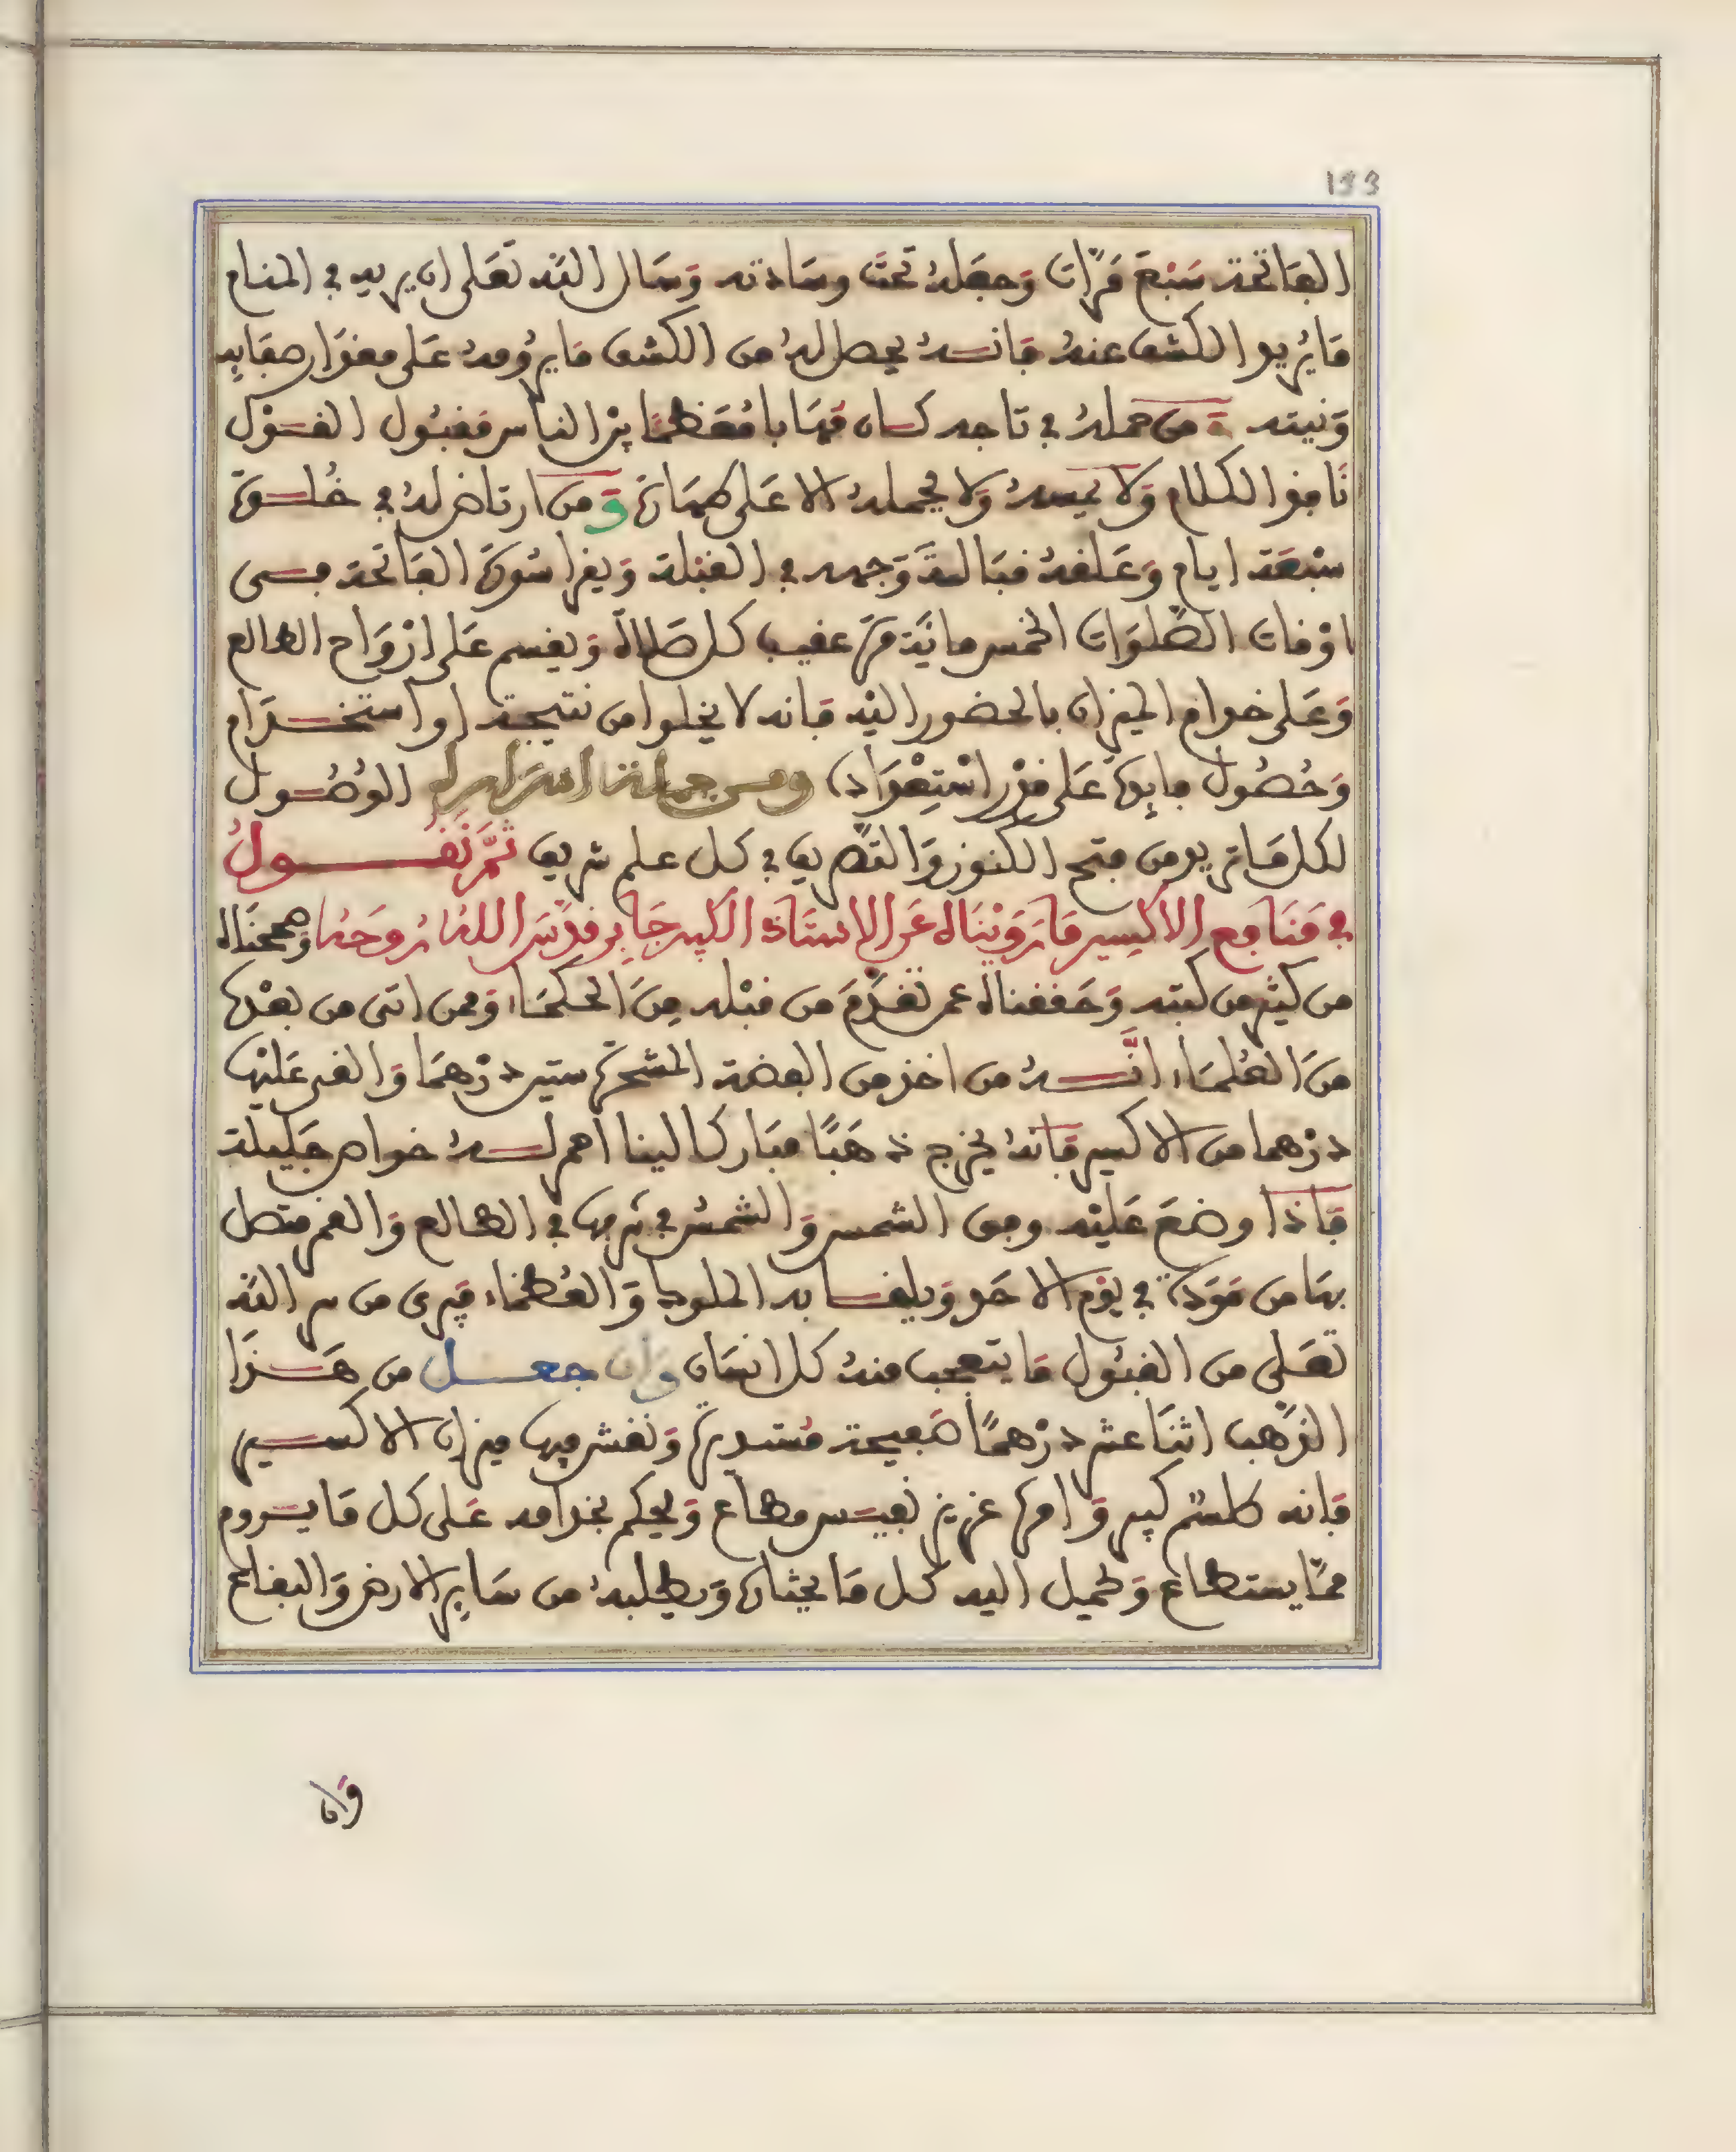 133
الفاتحة سَبْعَ مَرَّات وَجعَلهُ تحتَ وسَادته وَسَال اللّه تعَلى ان يريه في المنام
مَا يُريد الكشف عندهُ فَانــه يحصل لهُ من الكشف مَا يرُومهُ عَلى مقدَار صفَايِه
وَنيته وَمن حملهُ في تاجه كـان مهَابا مُعَظمًا بيْن الناس مقبُول القـوْل
نَافذ الكلام وَلا يمسهُ وَلا يحملهُ الا عَلى طهَارة وَمن ارتاض لهُ في خُلـوة
سبْعَة ايام وَعَلقهُ قبَالةَ وَجهه في القبْلة وَيقرا سُورَة الفَاتحة فـى
اوْقات الصَّلوَات الخمس مايَة مرة عقيب كل صَلاة وَيقسم عَلى ارْوَاح الطالع
وَعَلى خدام الميزان بالحضور اليْه فَانه لا يخلوا من نتيجة او استخـدَام
وَحُصُول مايِدة عَلى قدْر اسْتِعْدَاده ومـن جملة اسرَاره الوُصُـول
لكل مَا تريد من فتح الكنوز وَالتصَّريف في كل علم شريف ثمَّ نَقُـــول
في مَنَافِع الاكْسِير مَا رَوَيْنَاه عَن الاستَاذ الكبير جَابِر قدَّسَ اللهُ رُوحَهُ وَصححنَاه
من كثير من كتبه وَحَققناه عمن تقدَّمَ من قبْله مِنَ الحكمَاء وَممن اتى من بعْدِه
منَ العُلمَاء انَّــهُ من اخذ من الفضة المشحرة ستين درْهمَا وَالقى عَليْها
درْهما من الاكسير فَانهُ يخرج ذهَبًا مبَاركا لينا احمر لــهُ خواص جَليلة
فَاذا وضعَ عَليْه وفق الشمس وَالشمسُ في شرفها في الطالع وَالقمر متصل
بهَا من مَوَدة في يوْم الاحَد وَيلقـا به الملوك وَالعُظمَاء فيَرى من سر اللّه
تعَلى من القبُول مَا يتعجب منهُ كل انسَان وَان جعـــل من هَـذَا
الذهَب اثنَا عشر درْهمًا صَفيحة مُستديرة وَنقش فيها ميزان الاكسـير
فَانه طلسْم كبير وَامره عزيز نفيـس مطاع وَيحكم بخدامه عَلى كل مَا يـروم
ممَّا يستطاع وَتميل اليه كل مَا يختارة وَيطلبهُ من سَايِر الارض وَالبقاع
وَان